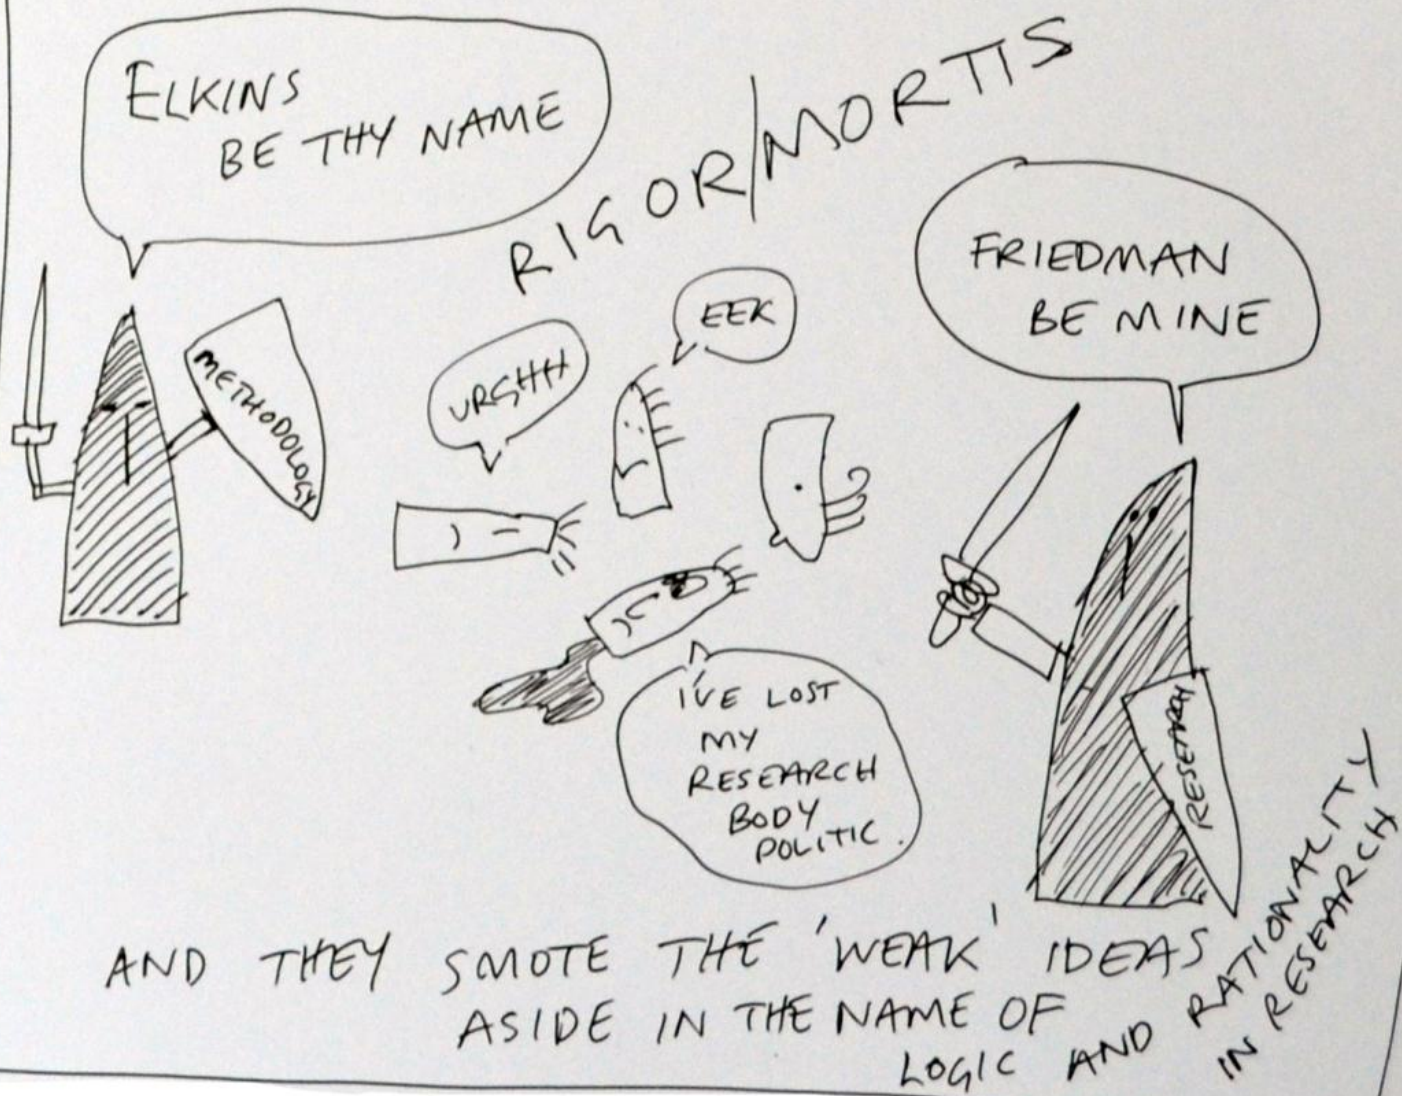 ELKINS
BE THY NAME
RIGOR/MORTIS
FRIEDMAN
BE MINE
METHODOLOGY
URGHH
EEK
I'VE LOST
MY
RESEARCH
BODY
POLITIC.
RESEARCH
AND THEY SMOTE THE 'WEAK' IDEAS
ASIDE IN THE NAME OF
LOGIC AND RATIONALITY
IN RESEARCH